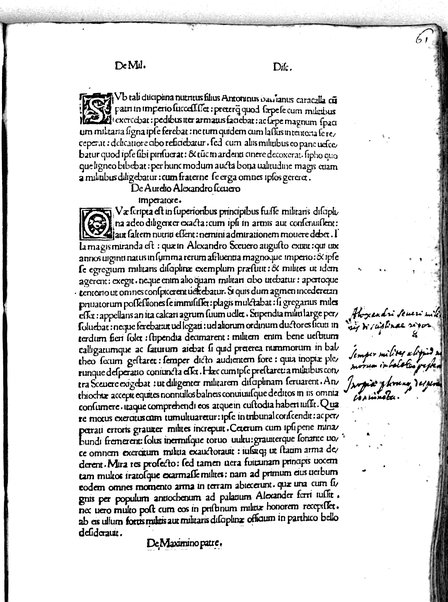 61
De Mil. Disc.
SVb tali disciplina nutritus filius Antoninus bassianus caracalla cũ
patri in imperio successisset: preterq̃ quod sepe se cum militibus
exercebat: pedibus iter armatus faciebat: ac sepe magnum spaci
um militaria signa ipse ferebat: ne tum quidem cum lassus in tentoria se re
ceperat: delicatiore cibo reficiebat, sed cum aliis militibus eo pane vesce/
batur quod ipse sibi pinsuerat: & cũ in ardenti cinere decoxerat, sipho quo
que ligneo bibebat: per hunc modum austa bona valitudine magis etiam
a militibus diligebatur: cum fraterne se erga omnes ipsos gereret.
De Aurelio Alexandro Severo
imperatore.
QVæ scripta est in superioribus principibus fuisse militaris discipli
na adeo diligenter exacta: cum ipsi in armis aut consenuissent:
aut saltem nutriti essent: nemini admirationem movere debet. I
lla magis miranda est: que in Alexandro Severo augusto extitit: qui vix
annos viginti natus in summa rerum affluentia magnoque imperio: & ipse
se egregium militaris disciplinæ exemplum præstitit: & milites ut idem
agerent: exegit. neque enim alio quam militari cibo utebatur: apertoque
tentorio ut omnes conspicerent vescebatur. Si quis dum agmen incederet in
privatorum possessiones se immisisset: plagis mulctabat: si gregarius miles
esset: appellans an ita calcari agrum suum vellet. Stipendia miliũ large per
soluebat: neque ferebat ut legati: vel aliorum ordinum ductores sicuti in
terdum fieri solet: stipendia demerent: militem enim bene vestitum
calligatumque ac saturum aiebat si quid preterea nummorum in bal
theo secum gestaret: semper dicto audientem fore: quia inopiæ ple
runque desperatio coniuncta esset. Hæc cum ipse prestaret: a militibus con
tra Severe exigebat: ut diligenter militarem disciplinam servarent. An/
thiochiæ accepit equites nonnullos balneis convivusque deditos in iis omnia
consumere. itaque comprehendi eos atque in custodia haberi iussit. Qua
re motus exercitus cum tumultuaretur: ipse in tribunal conscendit: ac per/
petrati erroris graviter milites increpuit. Ceterum cum ipsi pene mina/
bundi fremerent: solus inermisque torvo vultu: graviterque sonante vo
ce omnem exercitum militia exauctoravit: iussitq; ut statim arma de
derent. Mira res profecto: sed tamen vera futuram principis vocem
tam multos iratosque exarmasse milites: nam ad primum eius verbum
eodem omnes momento arma in terram abiecerunt. quæ una cum si
gnis per populum antiochenum ad palatium Alexander ferri iussit.
nec vero multo post cum eos in pristinum militiæ honorem recepisset.
ab es ullum fortis militis aut militaris disciplinæ officium in parthico bello
desideravit.
De Maximino patre.
Alexandri Severi mili
ris disciplinae rigor
Semper milites